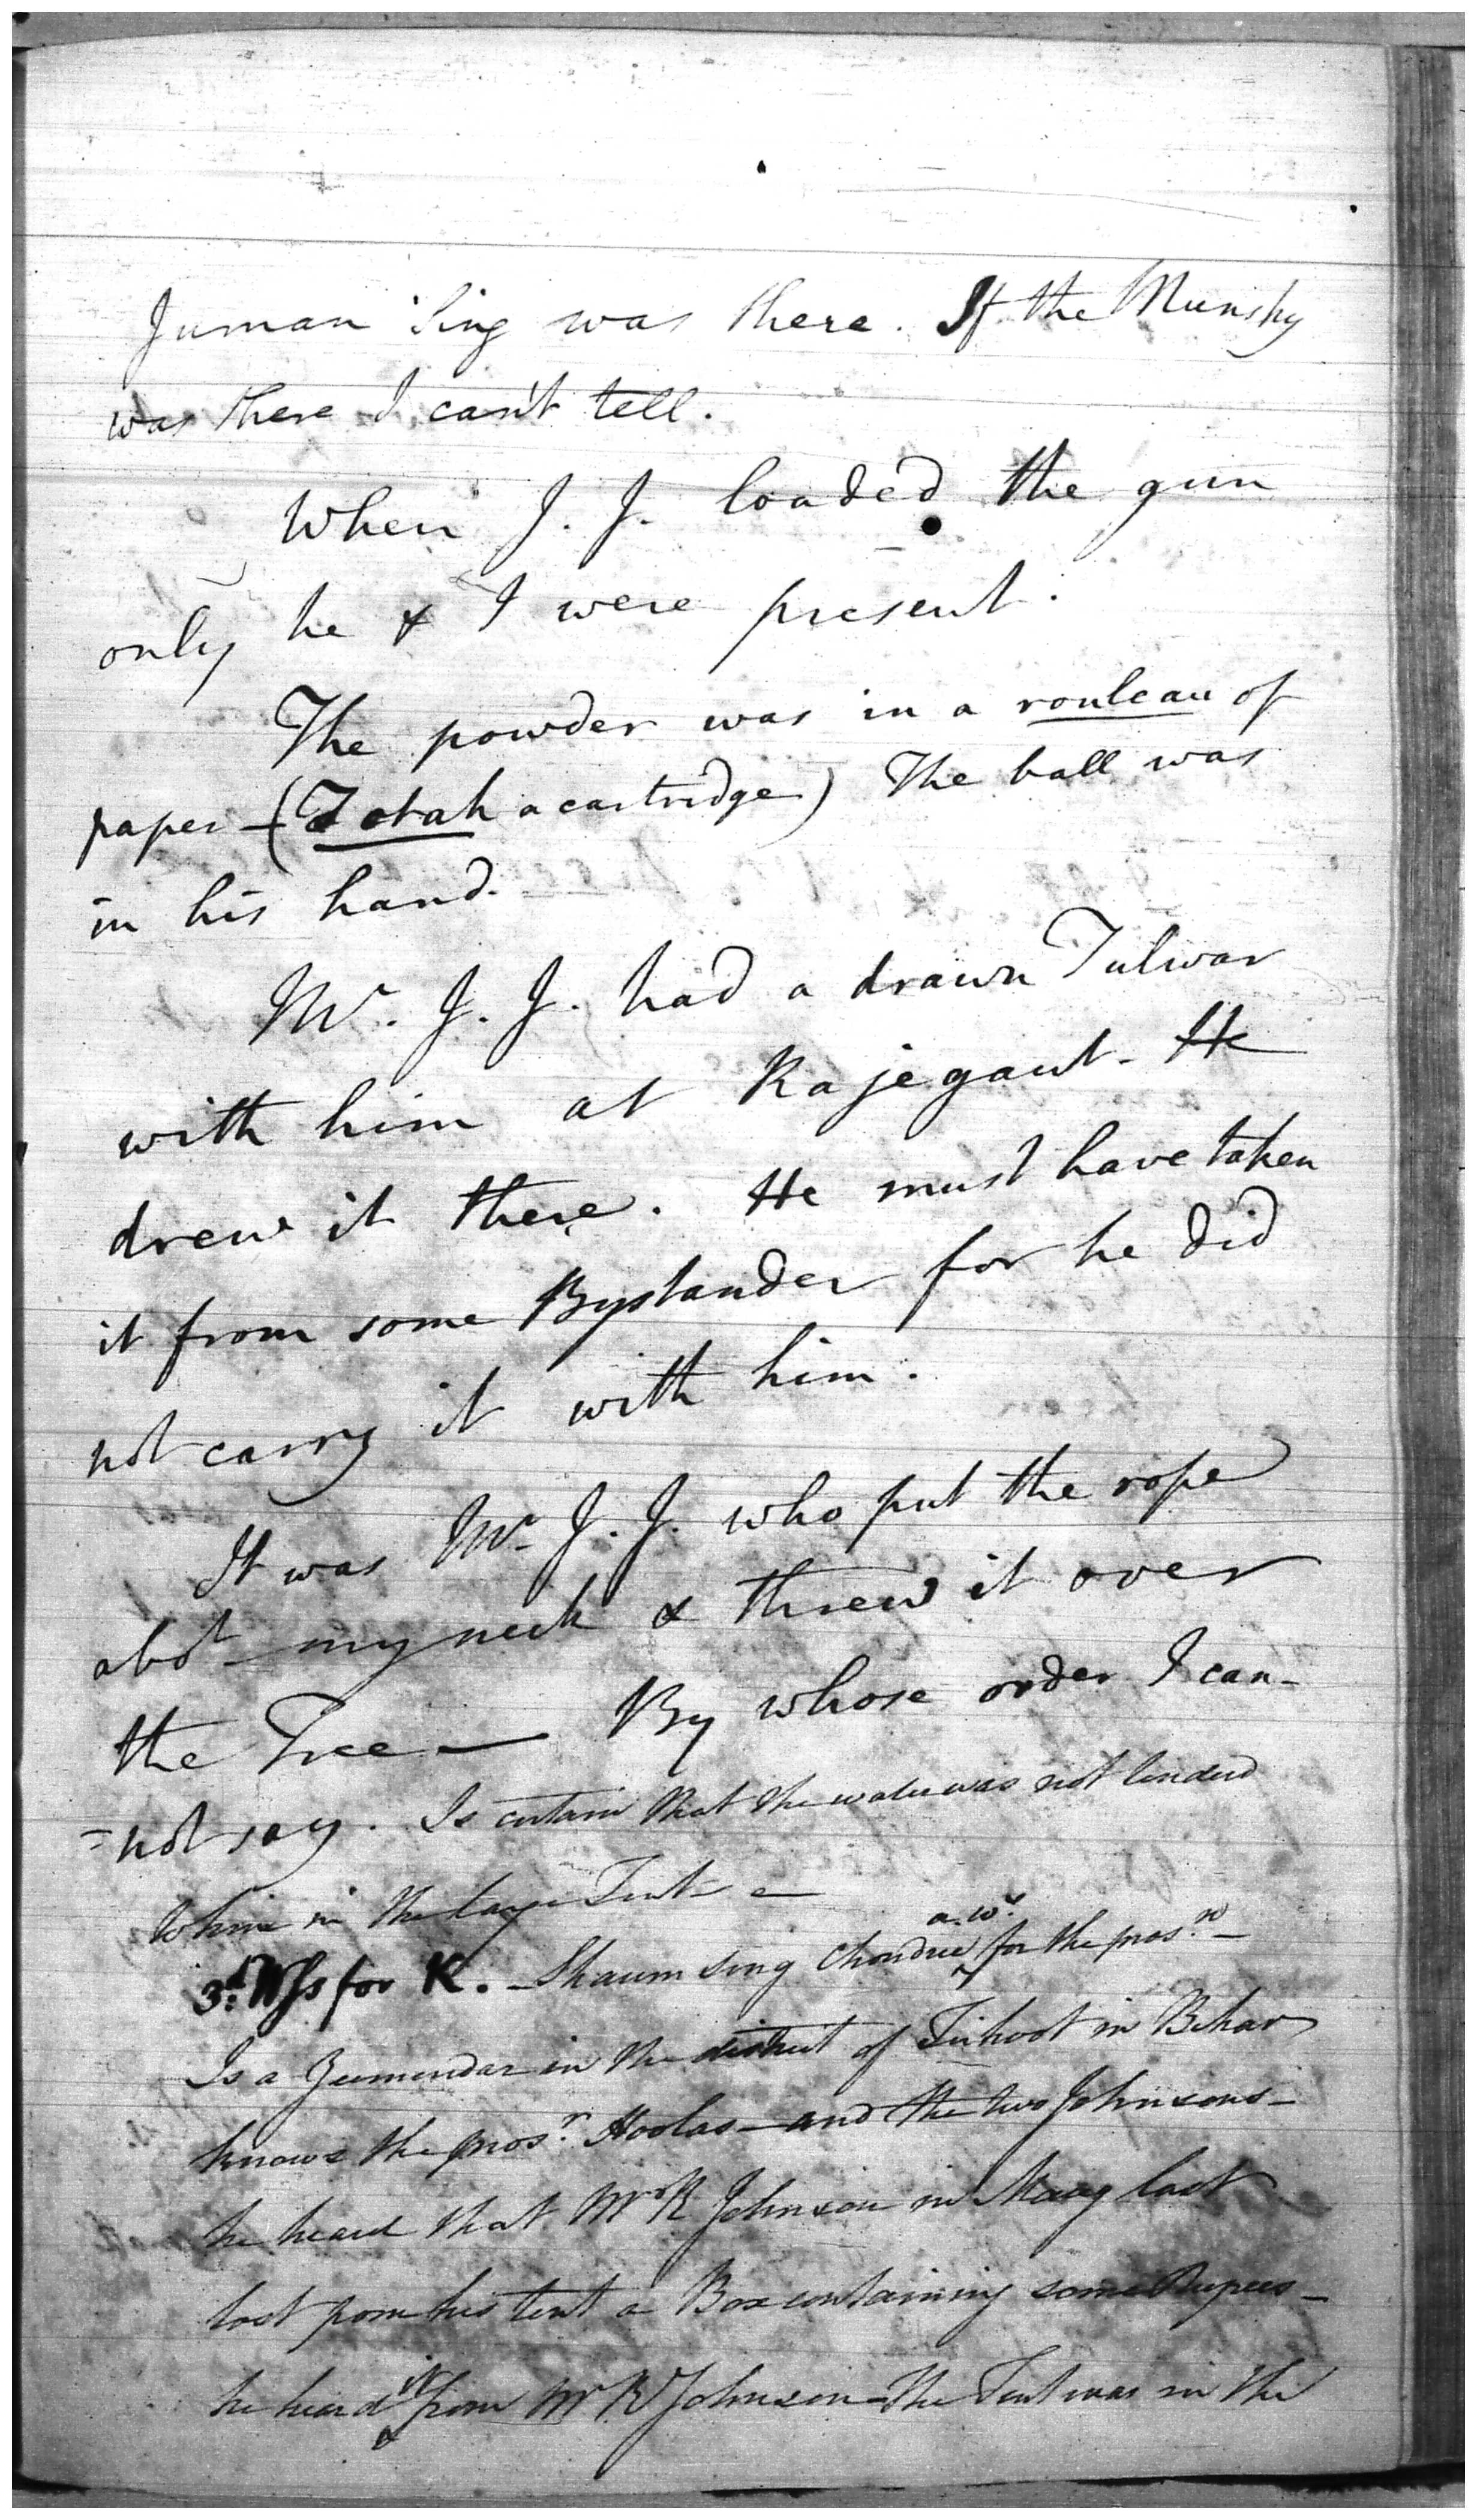 Juman Sing was there. If the Munshy
was there I can't tell.
When J. J. loaded the gun
only he & I were present.
The powder was in a rouleau of
paper - (Totah a cartridge) The ball was
in his hand.
Mr. J. J. had a drawn Tulwar
with him at Rajegaut - He
drew it there. He must have taken
it from some Bystander for he did
not carry it with him.
It was Mr. J. J. who put the rope
abot my neck & threw it over
the Tree — By whose order I can-
=not say. Is certain that the water was not
in the large Tent —
3d. Wss for K. - Shaum Sing a.w. for the prosn. -
Is a Zemendar in the district of Tirhoot in Behar
knows the prosr. Hoolas - and the two Johnsons -
he heard that Mr R Johnson in last
lost from his tent a Box containing some Rupees -
he heard it from Mr R Johnson - the Tent was in the